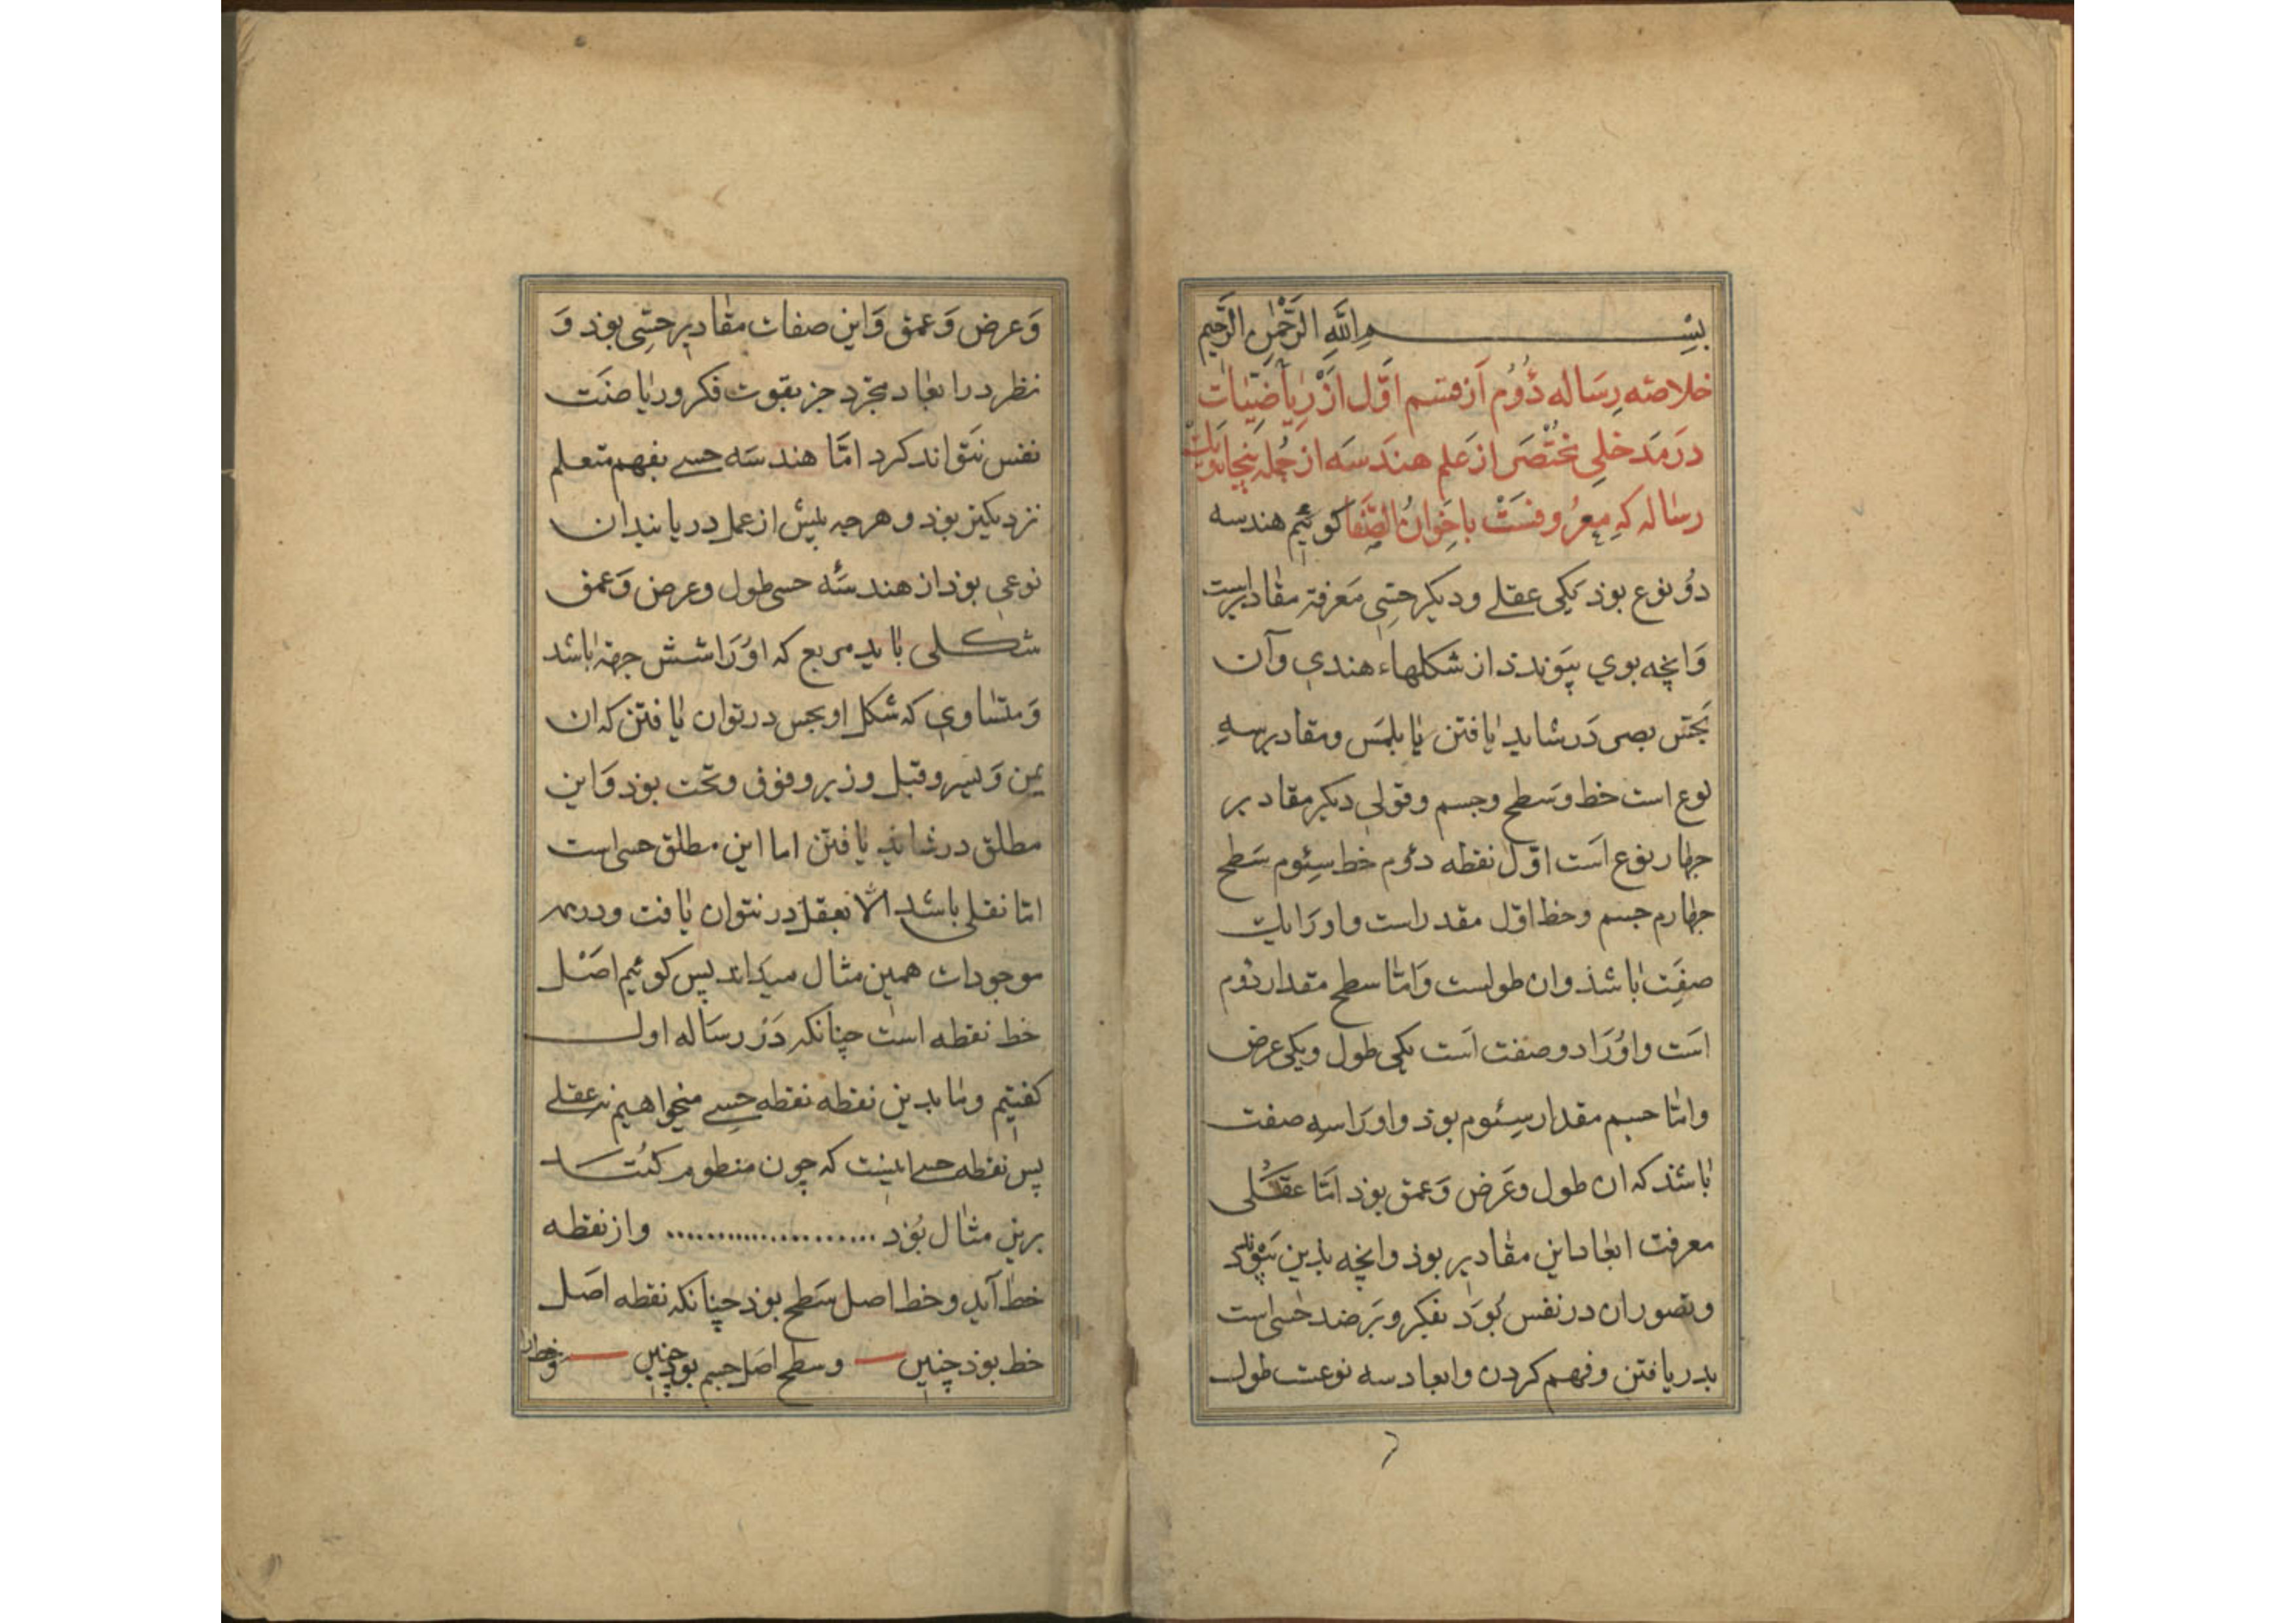 بسم الله الرحمن الرحيم
خلاصه رساله دُوُم از قسم اوّل از رياضيات
در مدخلى مختصر از علم هندسه از جمله پنجاه ويك
رساله كه معروفست باخوان الصفا كوئيم هندسه
دُو نوع بوذ يكى عقلے وديكر حسّى معرفة مقاديرست
وانچه بوي پيوندذ از شكلهاء هندسي وآن
بحس بصر در شايد يافتن يا بلمس ومقادير سه
نوع است خط وسطح وجسم وقولى ديكر مقادير
جهار نوع است اوّل نقطه دوُم خط سيُوم سَطح
جهارم جسم وخط اوّل مقدار است واورا يك
صفت باشذ وان طولست وامّا سطح مقدار دوم
است واوُرا دو صفت است يكى طول ويكى عرض
وامّا جسم مقدار سيُوم بوذ واورا سه صفت
باشذ كه ان طول وعرض وعمق بوذ امّا عقلى
معرفت ابعاد اين مقادير بوذ وانچه بذين پيوندد
وتصور ان در نفس بُوَد بفكر وبر ضد حسى است
بدريافتن وفهم كردن وابعاد سه نوعست طول
وعرض وعمق واين صفات مقادير حسّى بوذ و
نظر در ابعاد مجرّد جز بقوت فكر ورياضت
نفس نتواند كرد امّا هندسَه حسے بفهم متعلم
نزديكتر بوذ وهرجه پيش از عمل دريابند ان
نوعى بوذ از هندسَه حسى طول وعرض وعمق
شكلى بايد مربع كه اوُرا شش جهة باشد
ومتساوي كه شكل او بحس در توان يافتن كه ان
يمن ويسر وقبل ودبر وفوق وتحت بوذ واين
مطلق در شايد يافتن اما اين مطلق حسى است
امّا نقلى باشد الّا بعقل در نتوان يافت ودر همه
موجودات همين مثال ميداند پس كوئيم اصل
خط نقطه است چنانكه در رساله اول
كفتيم وما بدين نقطه نقطه حسے ميخواهيم نه عقلے
پس نقطه حسے اينست كه چون منظوم كنند
برين مثال بُوَد ..................... واز نقطه
خط آيد وخط اصل سَطح بوذ چنانكه نقطه اصل
خط بوذ چنين وسطح اصل جسم بوذ چنين وخط را